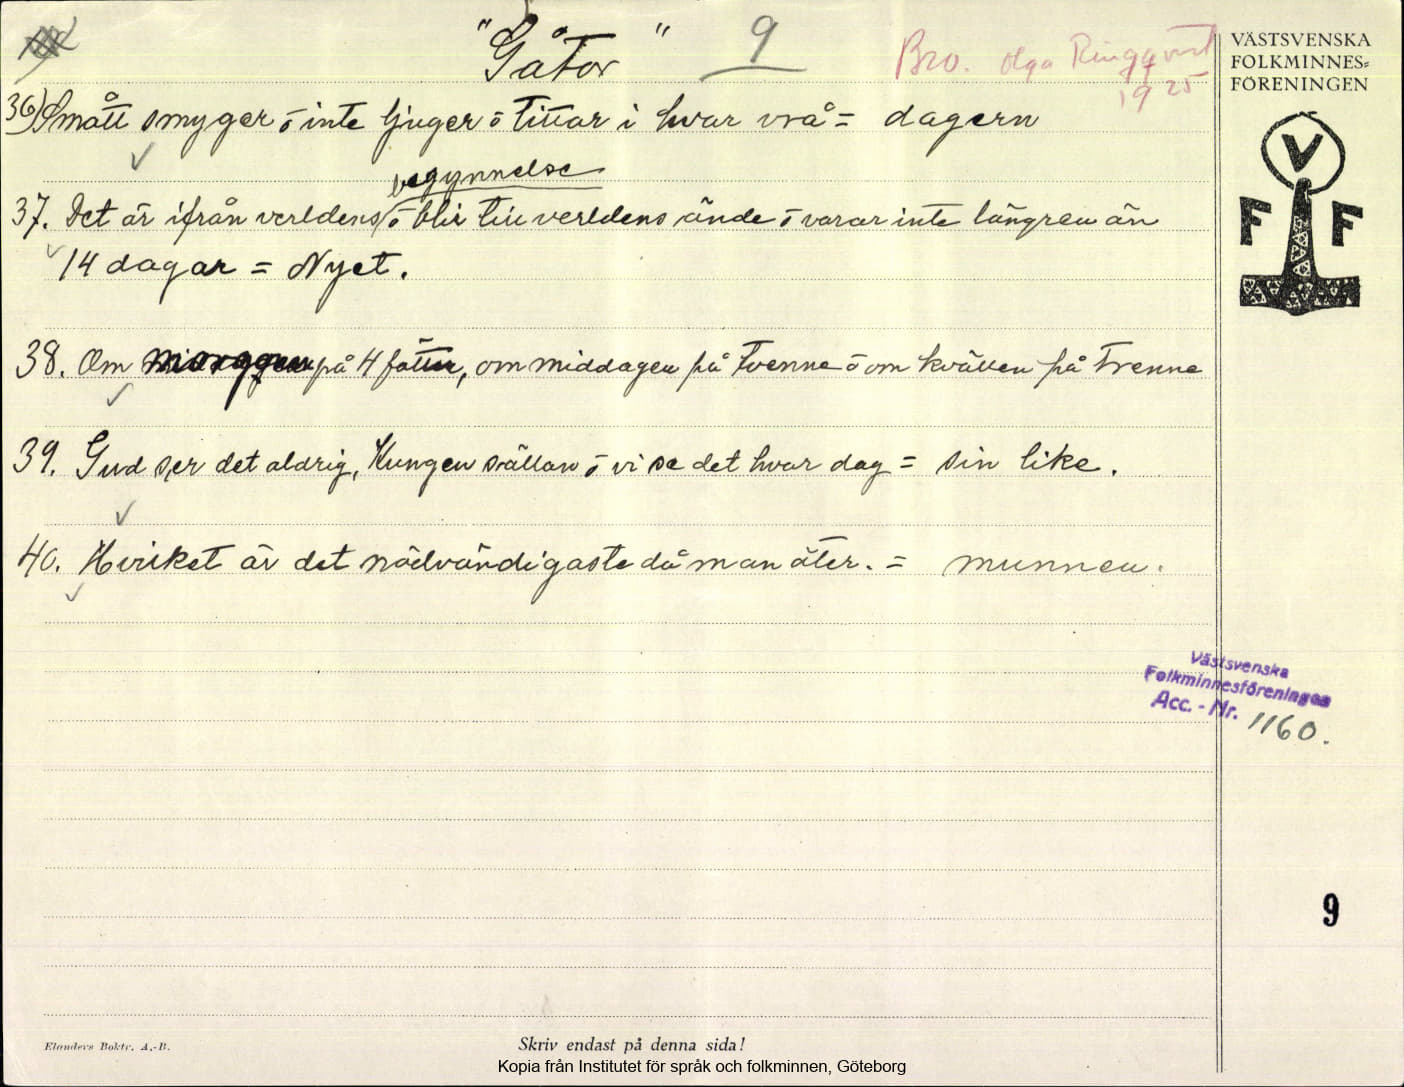 "Gåtor" 9
Bro. Olga Ringqvist
1925
VÄSTSVENSKA
FOLKMINNES=
FÖRENINGEN
V
F F
36) Smått smyger ō inte ljuger ō tittar i hvar vrå = dagern
begynnelse
37. Det är ifrån verldens ō blir till verldens ände ō varar inte längren än
14 dagar = Nyet.
38. Om morggen på 4 fötter, om middagen på tvenne ō om kvällen på trenne
39. Gud ser det aldrig, Kungen sällan ō vi se det hvar dag = sin like.
40. Hvilket är det nödvändigaste då man äter. = munnen.
Västsvenska
Folkminnesföreningen
Acc. - Nr. 1160.
9
Elanders Boktr. A.-B.
Skriv endast på denna sida!
Kopia från Institutet för språk och folkminnen, Göteborg